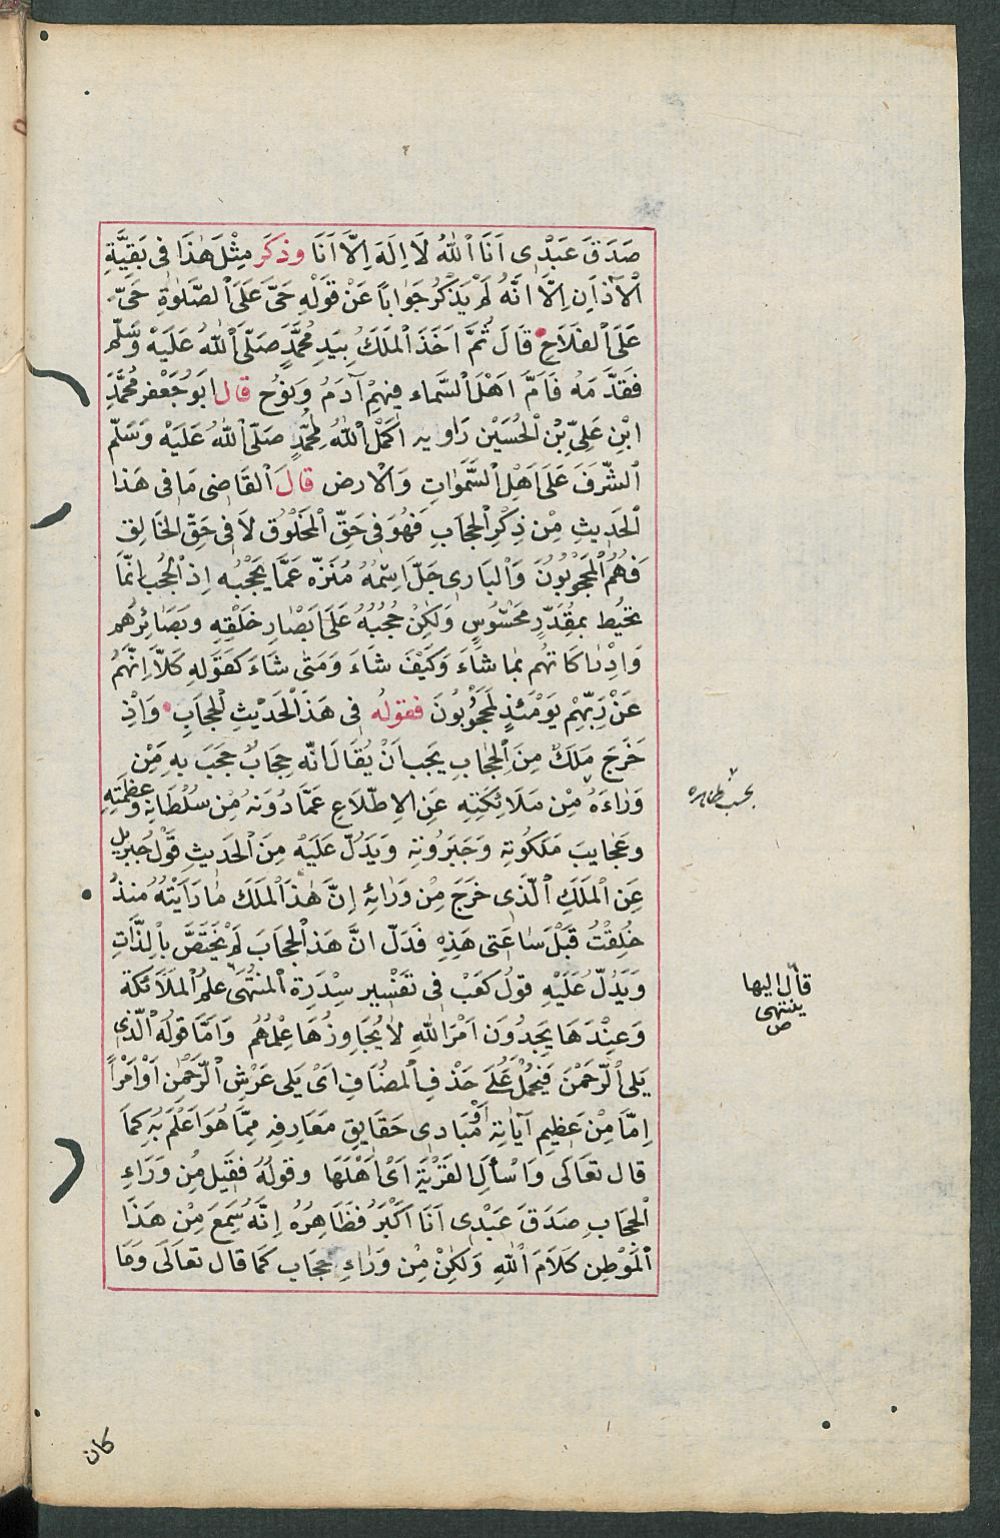 صَدَقَ عَبْدِى اَنَا اللّٰهُ لَا اِلٰهَ اِلَّا اَنَا وذكَر مِثْلَ هٰذَا فى بَقِيَّةِ
الْاَذَانِ اِلَّا انَّهُ لَمْ يَذْكُرْ جَوَابًا عَنْ قَوْلِهِ حَىَّ عَلَى الصَّلٰوةِ حَىَّ
عَلَى الفَلَاحِ قَالَ ثُمَّ اَخَذَ الْمَلَكُ بِيَدِ مُحَمَّدٍ صَلَّى اللّٰهُ عَلَيْهِ وَسَلَّم
فَقَدَّمَهُ فَاَمَّ اَهْلَ السَّمَاء فِيهِمْ آدَمُ وَنُوْح قال ابَو جَعْفر مُحَمَّدُ
ابْنِ عَلِىِّ بْنِ الْحُسَيْن رَاويه اَكْمَلَ اللّٰهُ لِمُحَمَّدٍ صَلَّى اللّٰهُ عَلَيْهِ وَسَلَّم
الشَّرَفَ عَلَى اَهْلِ السَّمٰوَاتِ وَالْارض قالَ الْقَاضِى مَا فى هَذا
الْحَدِيثِ مِنْ ذِكْرِ الْحِجَابِ فَهُوَ فى حَقّ الْمَخْلُوْق لَا فى حَقِّ الخَالِق
فَهُمُ الْمَحْجُوْبُونَ وَالْبَارى جَلَّ اسْمُهُ مُنَزّه عَمَّا يَحْجُبُه اِذ الْحُجُب انَّمَا
تحيُط بمقُدَّرٍ مَحْسُوسٍ وَلٰكِنْ حُجُبُهُ عَلَى اَبْصَارِ خَلْقِهِ وبَصَائِرهُم
وَادْرَاكَاتهُم بمَا شَاءَ وَكَيْفَ شَاءَ وَمَتٰى شاءَ كقَولهِ كَلّا اِنَّهُمْ
عَنْ رَبِّهِمْ يَوْمَئذٍ لَمَحْجُوْبُونَ فقوله فى هَذَا الْحَدِيْثِ الْحِجَابِ وَاِذْ
خَرَجَ مَلَكٌ مِنَ الْحِجَابِ يَجب اَنْ يُقَالَ انّه حِجَابٌ حَجَبَ بهِ مَنْ
وَرٰاءَهُ مِنْ مَلَائِكَتِهِ عَنِ الاِطّلَاعِ عَمَّا دُونَهُ مِنْ سُلْطَانِهِ وعَظَمَتِهِ
وعَجَايبِ مَلَكُوتِه وَجَبَرُوته وَيَدُلّ عَلَيْه مِنَ الْحَديثِ قَوْل جِبريل
عَنِ الْمَلَكِ الَّذِى خَرَجَ مِنْ وَرَائِهِ اِنَّ هٰذَا الْمَلَكَ مَا رَاَيْتُهُ منذُ
خُلِقْتُ قَبْلَ سَاعَتى هَذِهِ فَدَلّ انَّ هَذَا الْحِجَابَ لَمْ يَخْتَصَّ بالِذَّاتِ
وَيَدُلّ عَلَيْهِ قولُ كعَبْ فى تَفسْير سِدْرَةِ الْمُنْتَهٰى علمُ الْمَلَائكَة
وَعِنْدَهَا يَجِدُونَ اَمْرَ اللّٰهِ لَا يُجَاوِزُهَا عِلْمُهُم وَاَمَّا قوله الَّذِى
يَلى الرَّحْمٰنَ فَيحْمَلُ عَلٰى حَذْفِ الْمضَافِ اَىْ يَلى عَرْشِ الرَّحْمٰنِ اَوْ اَمْراً
اِمَّا مِنْ عَظِيمِ آيَاتِهِ اَوْ مَبَادِى حَقَايِقِ مَعَارِفِه مِمَّا هُوَ اَعْلَمُ بِهِ كمَا
قال تعَالَى وَاسْأَلِ القَرْيَةَ اَىْ اَهْلَهَا وقولُهُ فقيل مِنْ وَرَاءِ
الْحِجَابِ صَدَقَ عَبْدِى اَنَا اَكْبَرُ فظَاهِرُهُ اِنَّهُ سَمِعَ مِنْ هَذَا
الْمَوْطِنِ كَلَامَ اللّٰهِ وَلٰكِنْ مِنْ وَرَاءِ حِجَابٍ كَمَا قال تعَالَى وَمَا
قال اليها
ينتهى
ص
كان